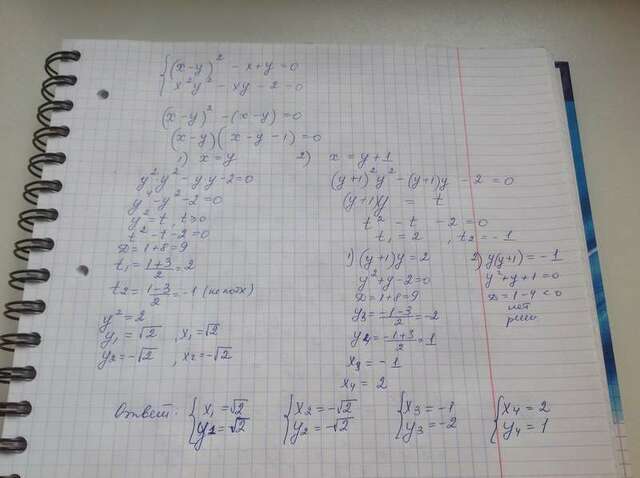 {(x-y)² - x+y = 0
x²y² - xy - 2 = 0
(x-y)² - (x-y) = 0
(x-y)(x-y-1) = 0
1) x = y
y²y² - y·y - 2 = 0
y⁴ - y² - 2 = 0
y² = t, t>0
t² - t - 2 = 0
D = 1+8 = 9
t₁ = (1+3)/2 = 2
t₂ = (1-3)/2 = -1 (не подх)
y² = 2
y₁ = √2, x₁ = √2
y₂ = -√2, x₂ = -√2
2) x = y+1
(y+1)²y² - (y+1)y - 2 = 0
(y+1)y = t
t² - t - 2 = 0
t₁ = 2, t₂ = -1
1) (y+1)y = 2
y² + y - 2 = 0
D = 1+8 = 9
y₃ = (-1-3)/2 = -2
y₄ = (-1+3)/2 = 1
x₃ = -1
x₄ = 2
2) y(y+1) = -1
y² + y + 1 = 0
D = 1-4 < 0
нет
реш.
Ответ: {x₁ = √2 {x₂ = -√2 {x₃ = -1 {x₄ = 2
y₁ = √2 y₂ = -√2 y₃ = -2 y₄ = 1